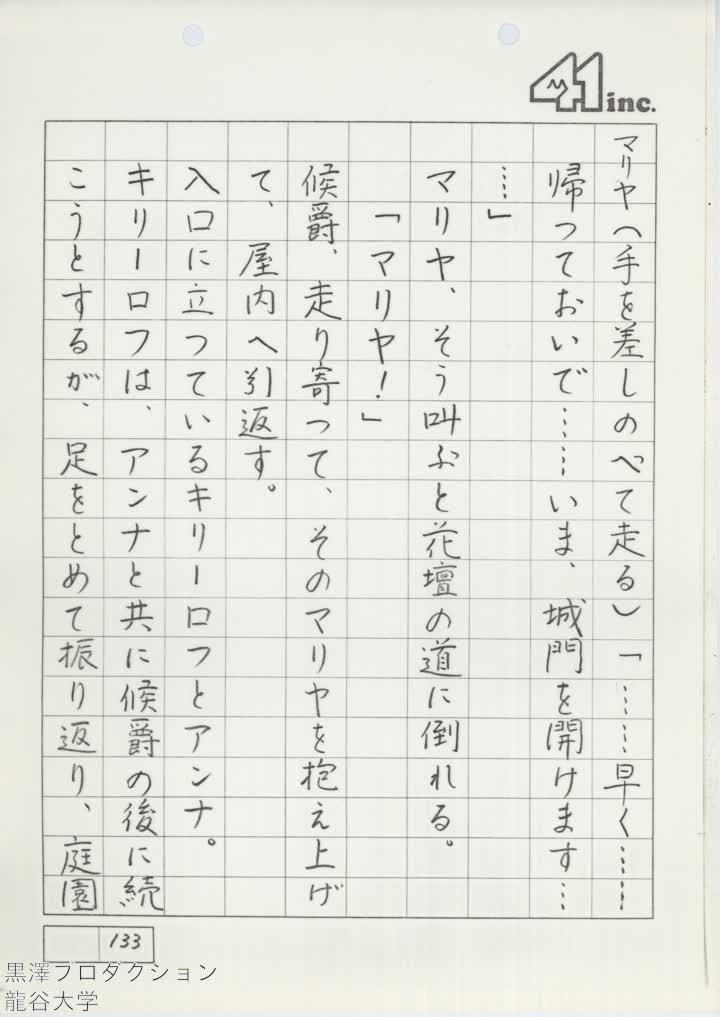 41 inc.
マリヤ（手を差しのべて走る）「……早く……
帰っておいで……いま、城門を開けます…
…」
マリヤ、そう叫ぶと花壇の道に倒れる。
「マリヤ！」
候爵、走り寄って、そのマリヤを抱え上げ
て、屋内へ引返す。
入口に立っているキリーロフとアンナ。
キリーロフは、アンナと共に候爵の後に続
こうとするが、足をとめて振り返り、庭園
133
黒澤プロダクション
龍谷大学